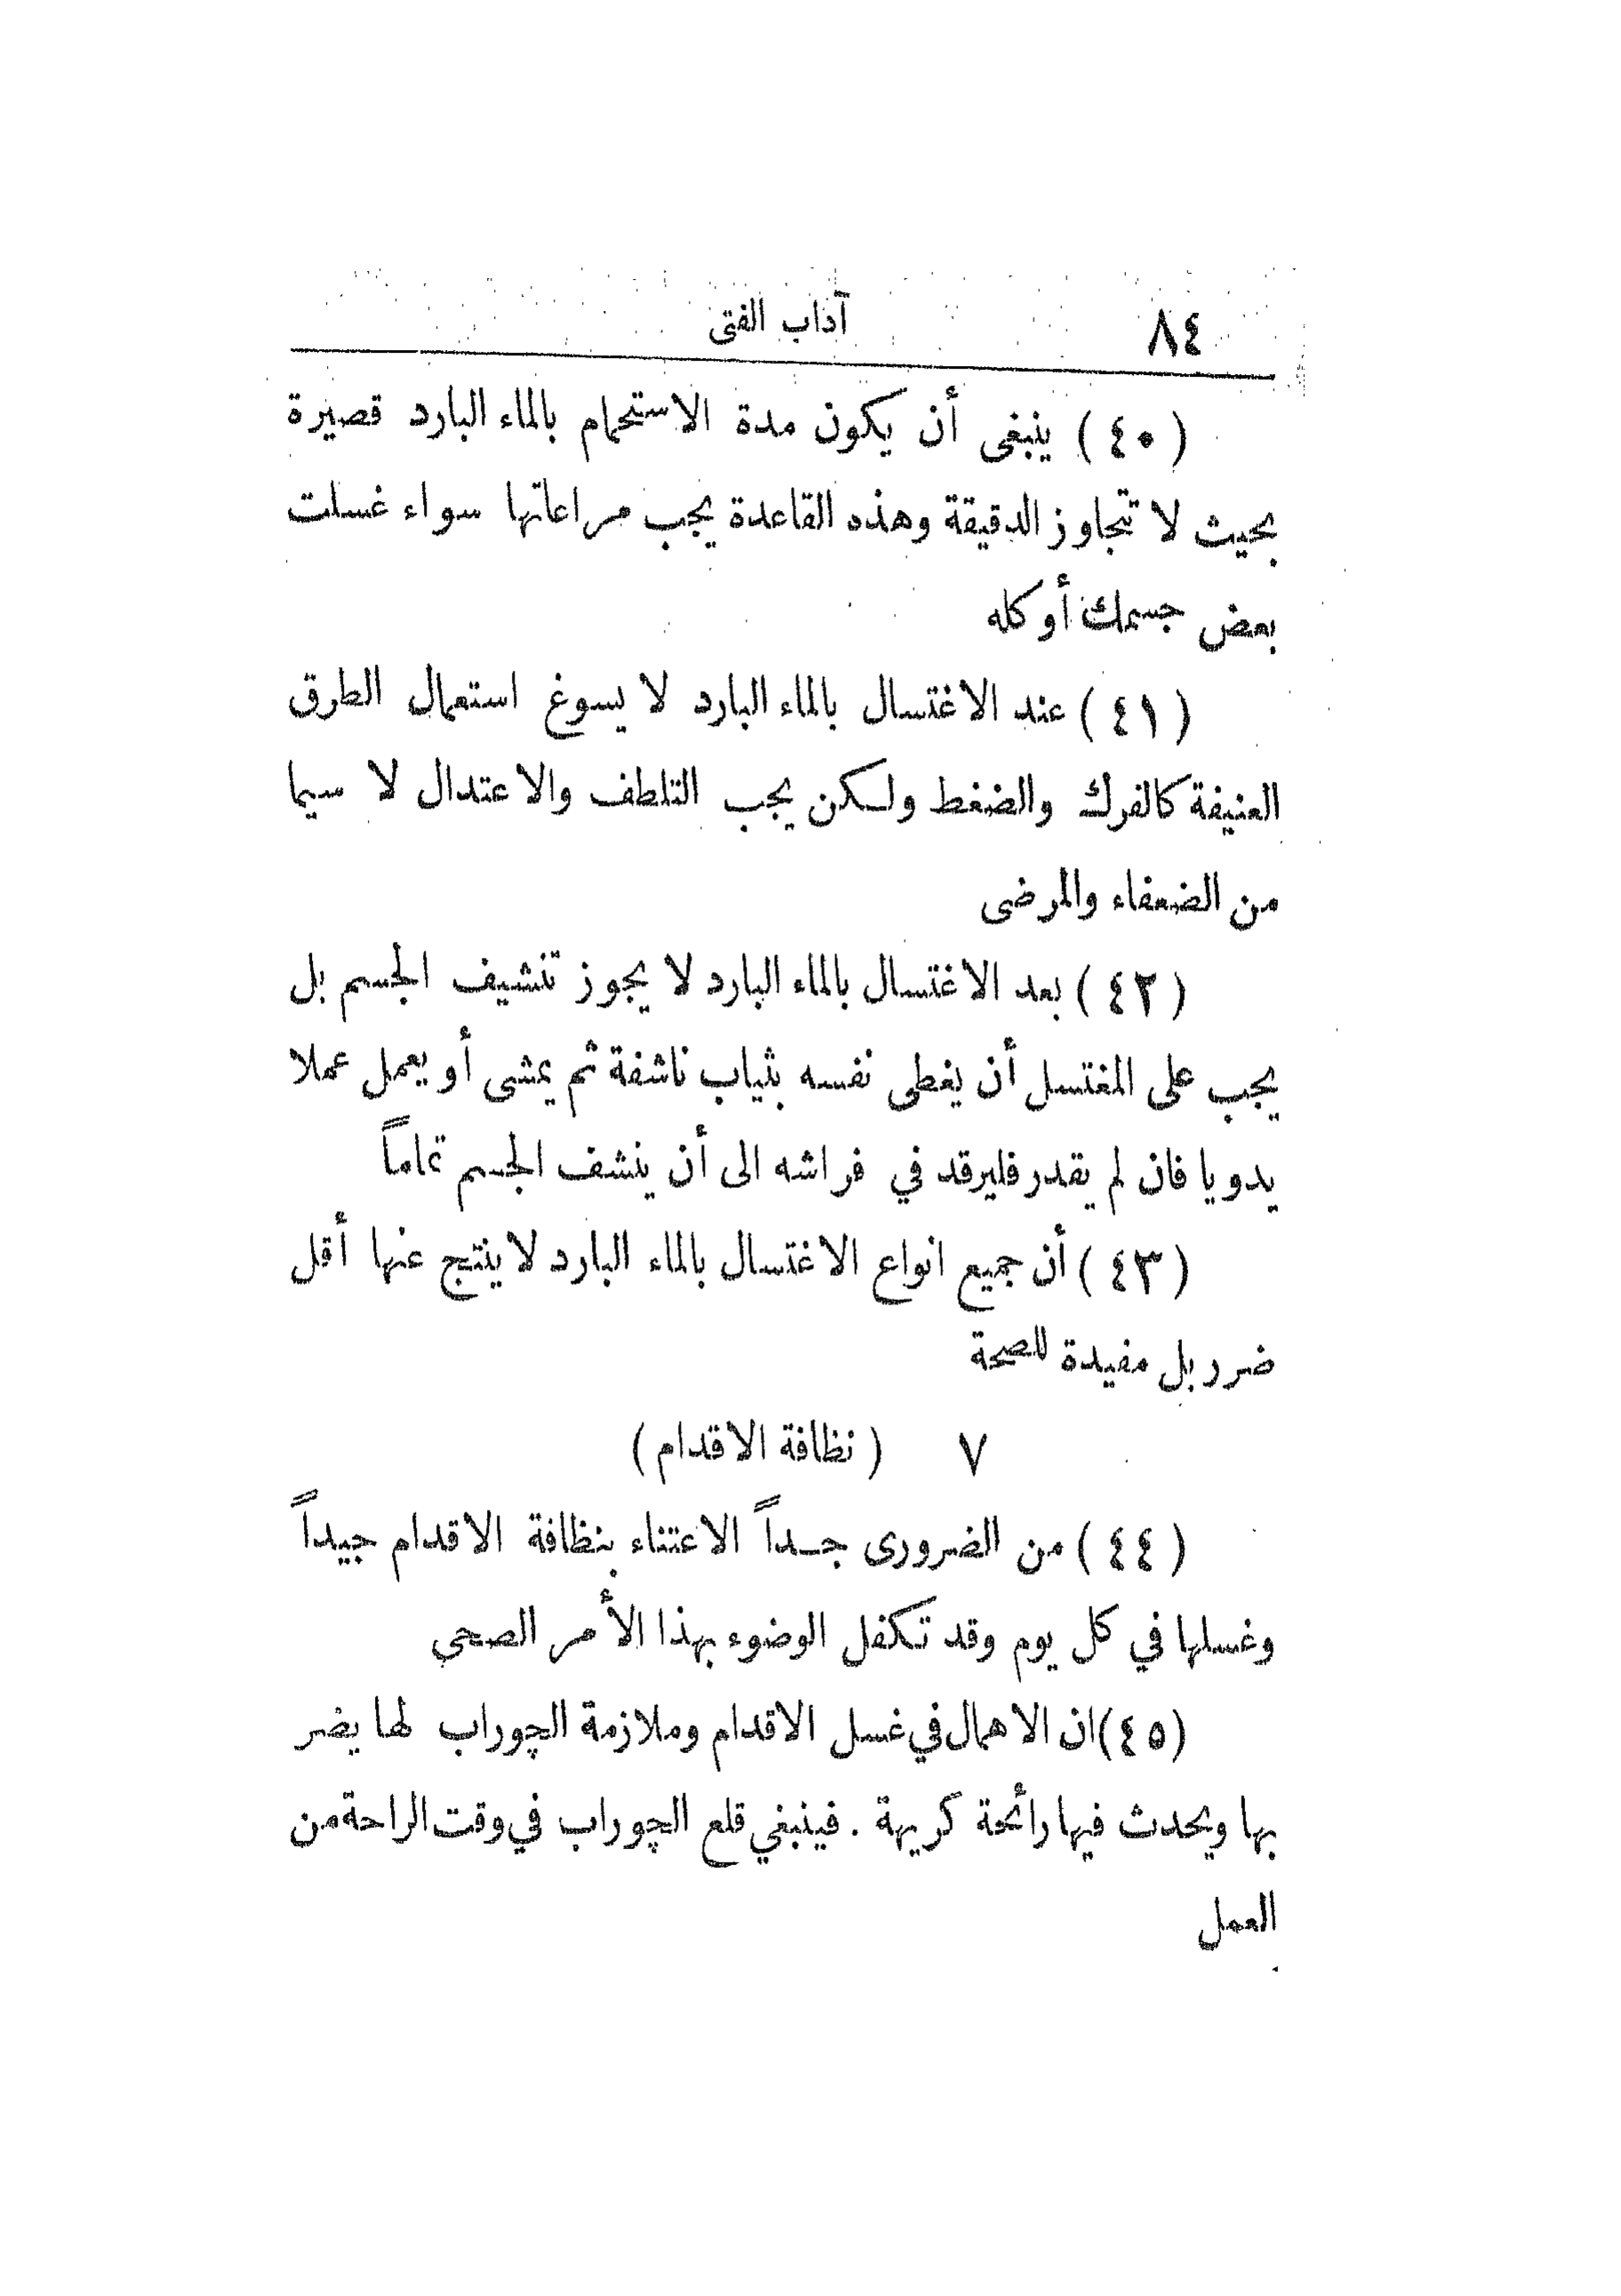 ٨٤ آداب الفتى
(٤٠) ينبغى أن يكون مدة الاستحمام بالماء البارد قصيرة
بحيث لا تتجاوز الدقيقة وهذه القاعدة يجب مراعاتها سواء غسلت
بعض جسمك أو كله
(٤١) عند الاغتسال بالماء البارد لا يسوغ استعمال الطرق
العنيفة كالفرك والضغط ولكن يجب التلطف والاعتدال لا سيما
من الضعفاء والمرضى
(٤٢) بعد الاغتسال بالماء البارد لا يجوز تنشيف الجسم بل
يجب على المغتسل أن يغطى نفسه بثياب ناشفة ثم يمشى أو يعمل عملا
يدويا فان لم يقدر فليرقد في فراشه الى أن ينشف الجسم تماماً
(٤٣) أن جميع انواع الاغتسال بالماء البارد لا ينتج عنها أقل
ضرر بل مفيدة للصحة
٧ (نظافة الاقدام)
(٤٤) من الضرورى جداً الاعتناء بنظافة الاقدام جيداً
وغسلها في كل يوم وقد تكفل الوضوء بهذا الأمر الصحي
(٤٥) ان الاهمال في غسل الاقدام وملازمة الچوراب لها يضر
بها ويحدث فيها رائحة كريهة . فينبغي قلع الچوراب في وقت الراحة من
العمل